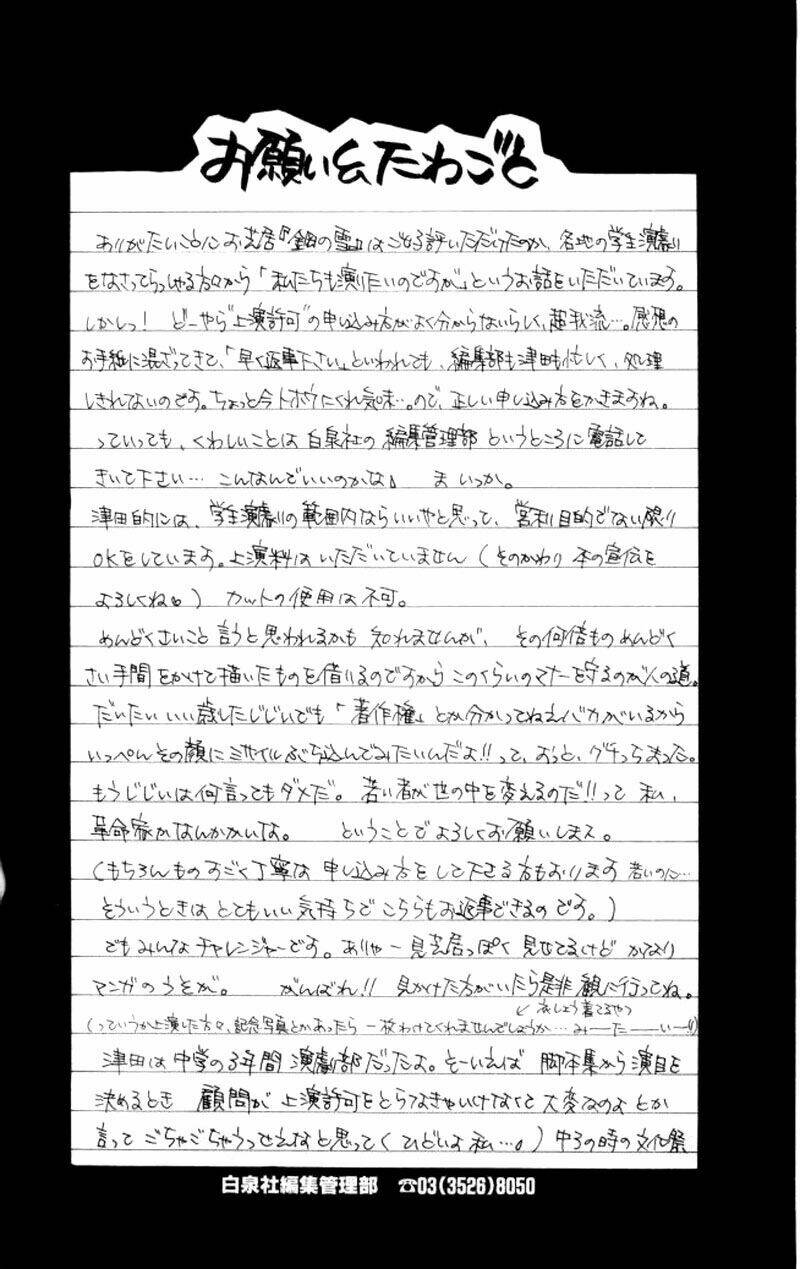 お願い&たわごと
ありがたいことにお芝居『金曜の雪』はご好評いただけたのか、各地の学生演劇
をなさってらっしゃる方々から「私たちも演りたいのですが」というお話をいただいています。
しかしっ! どーやら"上演許可"の申し込み方がよく分からないらしく、超我流…。感想の
お手紙に混ざってきて、「早く返事下さい」といわれても、編集部も津田も忙しく、処理
しきれないのです。ちょっと今トホウにくれ気味…。ので、正しい申し込み方をかきますね。
っていっても、くわしいことは白泉社の編集管理部というところに電話して
きいて下さい… こんなんでいいのかな ま いっか。
津田的には、学生演劇の範囲内ならいいやと思って、営利目的でない限り
OKをしています。上演料はいただいていません(そのかわり 本の宣伝を
よろしくね) カットの使用は不可。
めんどくさいこと 言うと思われるかも 知れませんが、 その何倍ものめんどく
さい手間をかけて描いたものを借りるのですから このくらいのマナーを守るのが人の道。
だいたい いい歳したじじいでも「著作権」とか分かってねえバカがいるから
いっぺんその顔にミサイルぶち込んでみたいんだよ!!って、おっと、グチっちまった。
もうじじいは何言ってもダメだ。若い者が世の中を変えるのだ!!って 私、
革命家かなんかかいな。 ということでよろしくお願いします。
(もちろんものすごく丁寧な 申し込み方をして下さる方もおります 若いのに…
そういうときは とてもいい気持ちで こちらもお返事できるのです。)
でもみんなチャレンジャーです。ありゃ一見芝居っぽく 見せてるけど かなり
マンガのうそが。 がんばれ!! 見かけた方がいたら是非 観に行ってね。
↙衣しょう着てるやつ
(っていうか上演した方々、記念写真とかあったら 一枚わけてくれませんでしょうか… みーたーいーー!!)
津田は中学の3年間 演劇部だったよ。そーいえば 脚本集から演目を
決めるとき 顧問が 上演許可をとらなきゃいけなくて 大変なのよ とか
言って ごちゃごちゃうっせえなと思ってく ひどいよ私…。) 中3の時の文化祭
白泉社編集管理部 ☎03(3526)8050